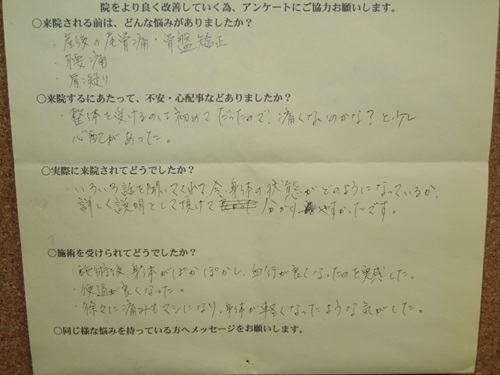 院をより良く改善していく為、アンケートにご協力お願いします。
○来院される前は、どんな悩みがありましたか？
・産後の尾骨痛・骨盤矯正
・腰痛
・肩凝り
○来院するにあたって、不安・心配事などありましたか？
・整体を受けるのは初めてだったので、痛くないのかな？と少し
心配があった。
○実際に来院されてどうでしたか？
・いろいろ話を聞いてくれて、今、身体の状態がどのようになっているか、
詳しく説明をして頂けて 分かりやすかったです。
○施術を受けられてどうでしたか？
・施術後身体がぽかぽかし、血行が良くなったのを実感した。
・便通が良くなった。
・徐々に痛みもマシになり、身体が軽くなったような気がした。
○同じ様な悩みを持っている方へメッセージをお願いします。